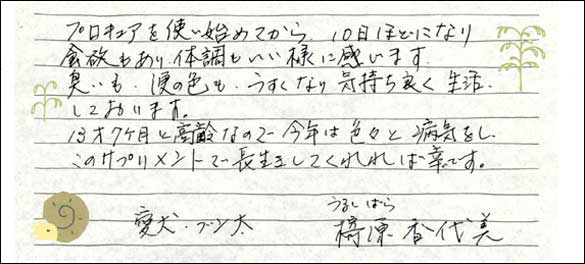 プロキュアを使い始めてから、10日ほどになり
食欲もあり、体調もいい様に感います。
臭いも、便の色も、うすくなり気持ち良く生活、
しております。
13才7ケ月と高齢なので今年は色々と病気をし、
このサプリメントで長生きしてくれれば幸です。
うるしばら
愛犬・ブン太 原 香代美